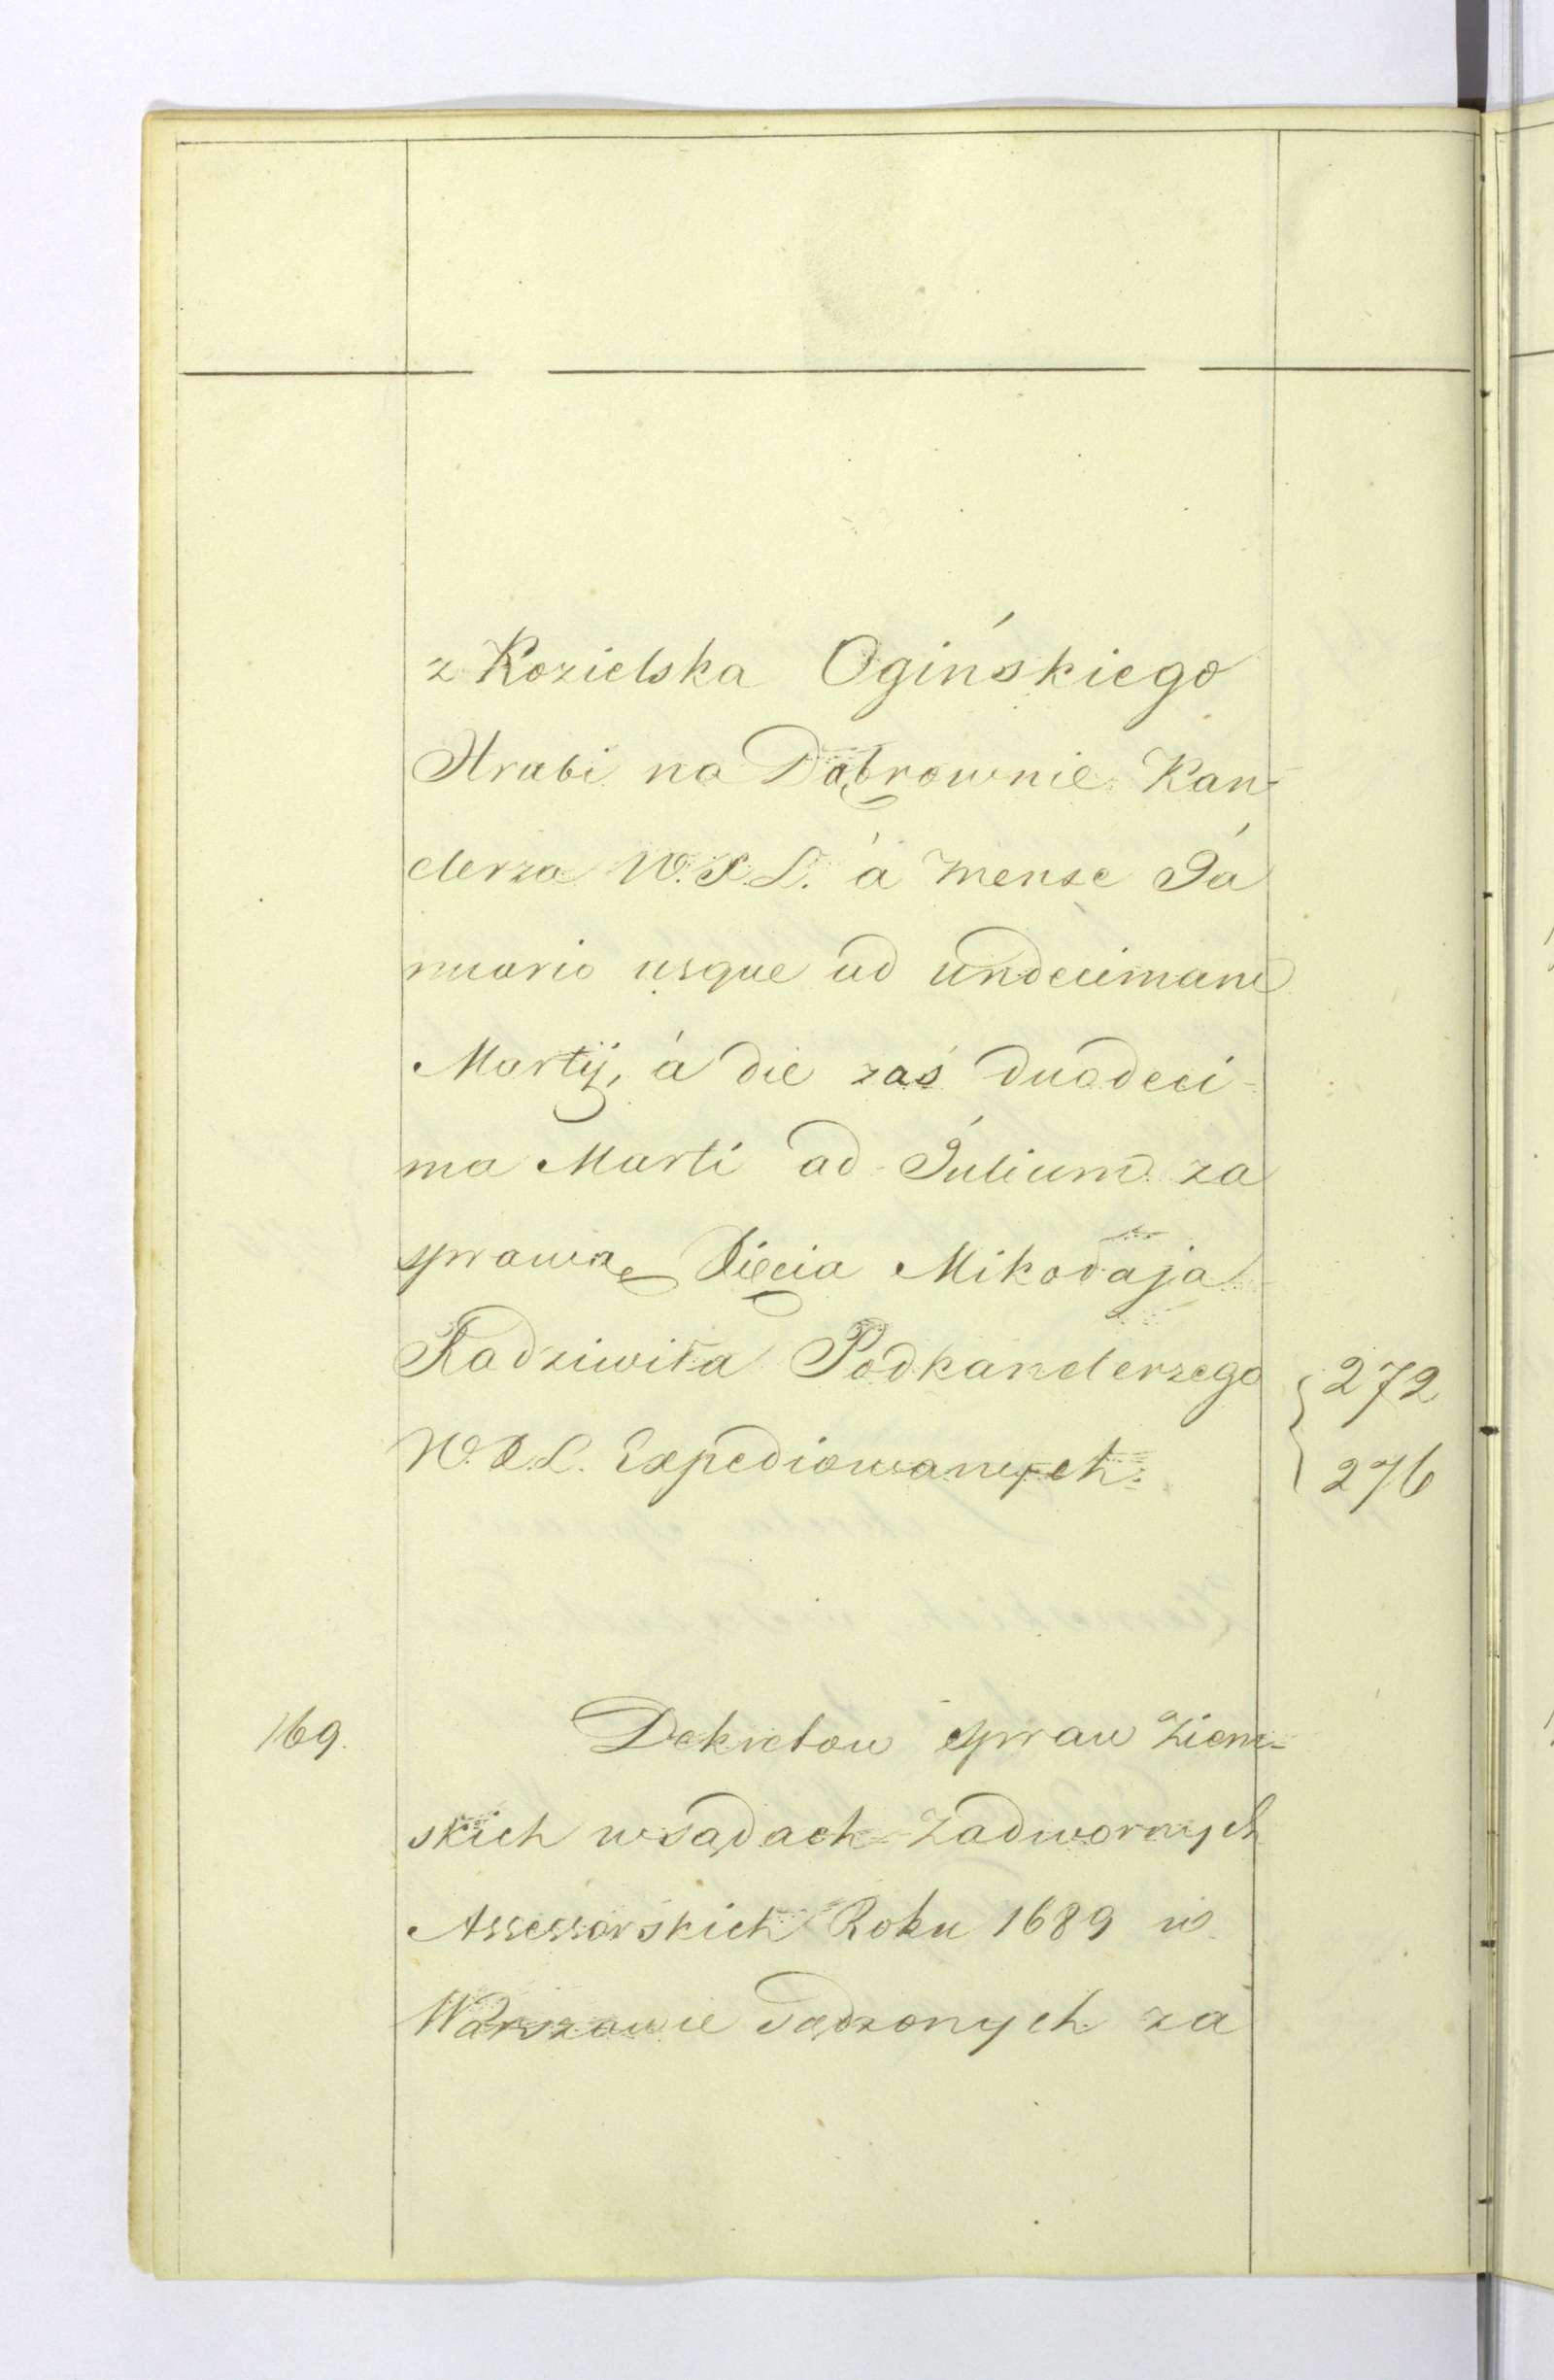 z Kozielska Ogińskiego
Hrabi na Dąbrownie Kan-
clerza W. X. L. á mense Ja
nuario usque ad undecimam
Martÿ, á die zaś duodeci-
ma Marti ad Julium za
sprawą Xięcia Mikołaja
Radziwiła Podkanclerzego
W. X. L. Expediowanych.
272
276
169.
Dekretow spraw Ziem-
skich w sądach Zadwornych
Assessorskich Roku 1689 w
Warszawie sądzonych za